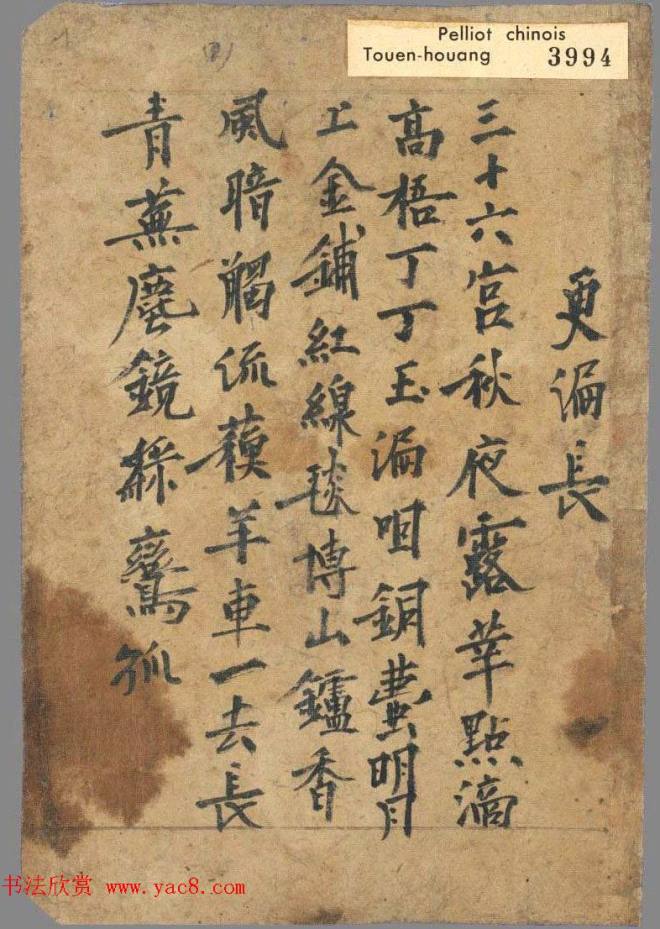 Pelliot chinois
Touen-houang 3994
更漏長
三十六宮秋夜露華點滴
高梧丁丁玉漏咽銅壺明月
上金鋪紅線毯博山鑪香
風暗觸流蘇羊車一去長
青蕪塵鏡綵鸞孤
书法欣赏 www.yac8.com